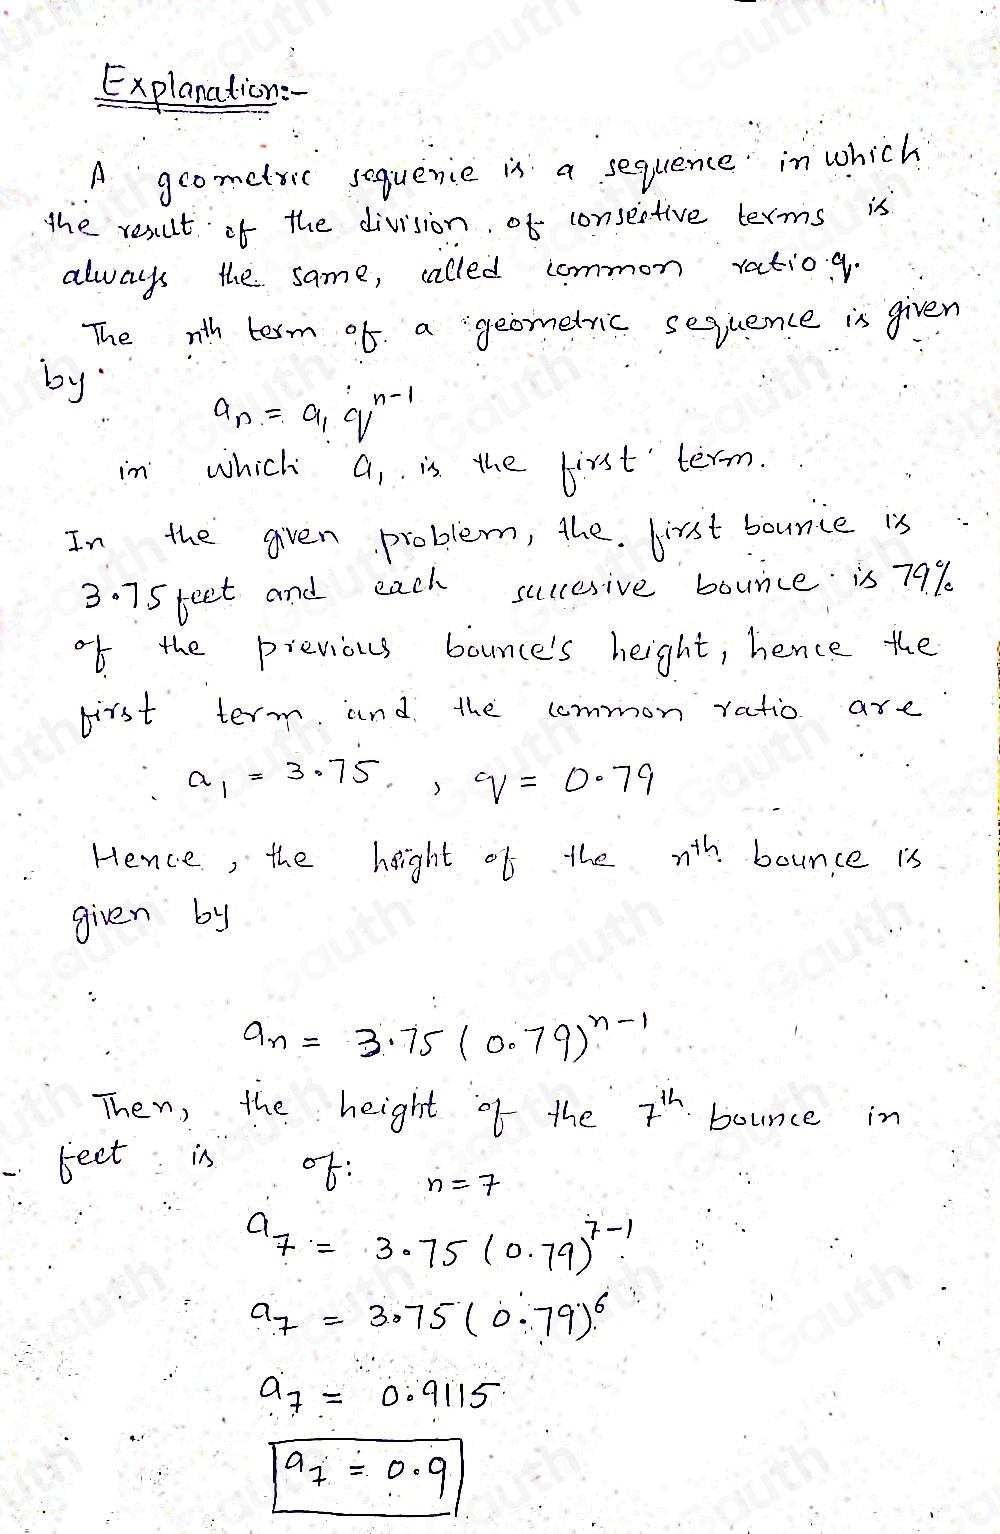 Explanation:-
A geometric sequence is a sequence in which
the result of the division of consective terms is
always the same, called common ratio q.
The nth term of a geometric sequence is given
by
aₙ = a₁ qⁿ⁻¹
in which a₁ is the first term.
In the given problem, the first bounce is
3.75 feet and each succesive bounce is 79%
of the previous bounce's height, hence the
first term and the common ratio are
a₁ = 3.75, q = 0.79
Hence, the height of the nth bounce is
given by
aₙ = 3.75 (0.79)ⁿ⁻¹
Then, the height of the 7th bounce in
feet is of:
n = 7
a₇ = 3.75 (0.79)⁷⁻¹
a₇ = 3.75 (0.79)⁶
a₇ = 0.9115
a₇ = 0.9